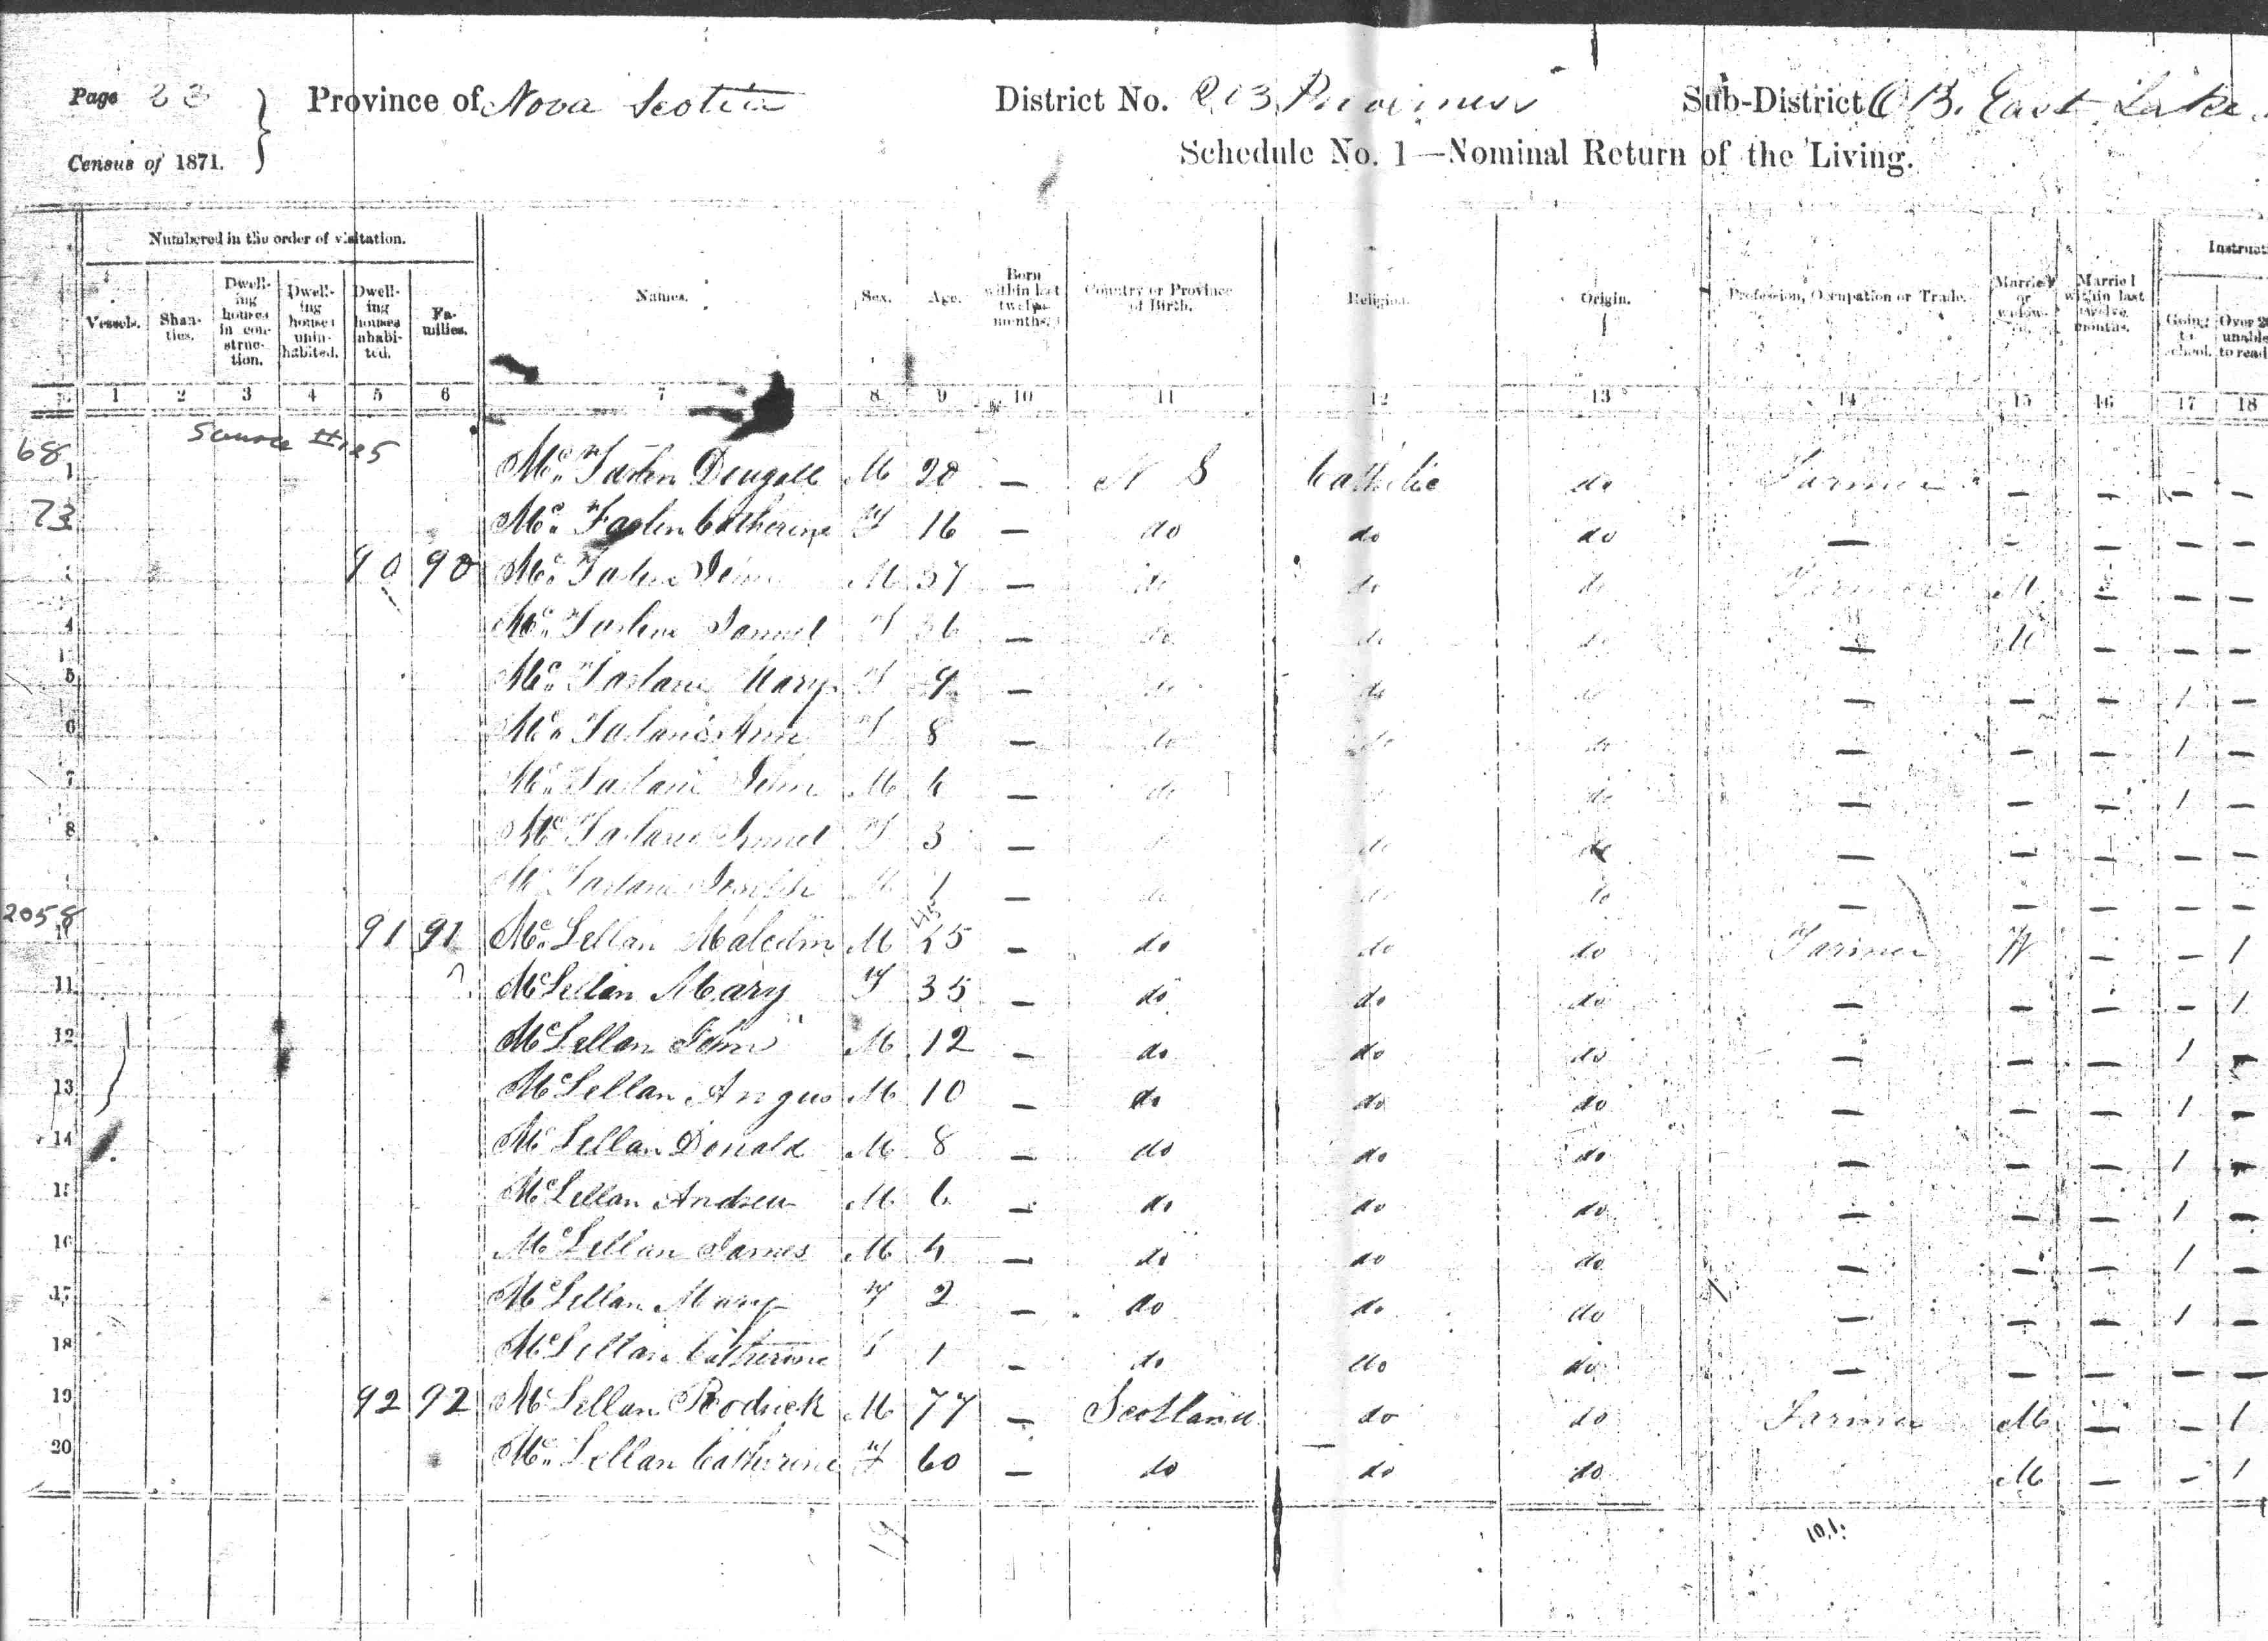 Page 23 Province of Nova Scotia District No. 203 Sub-District B. East Lake
Census of 1871. Schedule No. 1—Nominal Return of the Living.
Numbered in the order of visitation. Instruct
Vessels. Shan-ties. Dwell-ing houses in con-struc-tion. Dwell-ing houses unin-habited. Dwell-ing houses inhabi-ted. Fa-milies. Names. Sex. Age. Born within last twelve months. Country or Province of Birth. Religion. Origin. Profession, Occupation or Trade. Married or widow-ed. Married within last twelve months. Going to school. Over 20 unable to read
1 2 3 4 5 6 7 8 9 10 11 12 13 14 15 16 17 18
Source #125
68 1 Mc Farlen Dougall M 20 — N S Catholic do Farmer — — — —
73 Mc Farlen Catherine F 16 — do do do — — — — —
3 90 90 Mc John M 37 — do do do Farmer M — — —
4 Mc F 36 — do do do — M — — —
5 Mc Farlane Mary F 9 — do do do — — — 1 —
6 Mc Farlane Ann F 8 — do do do — — — 1 —
7 Mc Farlane John M — do do do — — — 1 —
8 Mc Farlane F 3 — do do do — — — — —
9 Mc Farlane Joseph M 1 — do do do — — — — —
2058 10 91 91 Mc Lellan Malcolm M 45 — do do do Farmer W — — 1
11 McLellan Mary F 35 — do do do — — — — 1
12 McLellan John M 12 — do do do — — — 1 —
13 McLellan Angus M 10 — do do do — — — 1 —
14 McLellan Donald M 8 — do do do — — — 1 —
15 McLellan Andrew M 6 — do do do — — — 1 —
16 McLellan James M 4 — do do do — — — 1 —
17 McLellan Mary F 2 — do do do — — — 1 —
18 McLellan Catherine F 1 — do do do — — — — —
19 92 92 McLellan Rodrick M 77 — Scotland do do Farmer M — — 1
20 Mc Lellan Catherine F 60 — do do do M — — 1
19